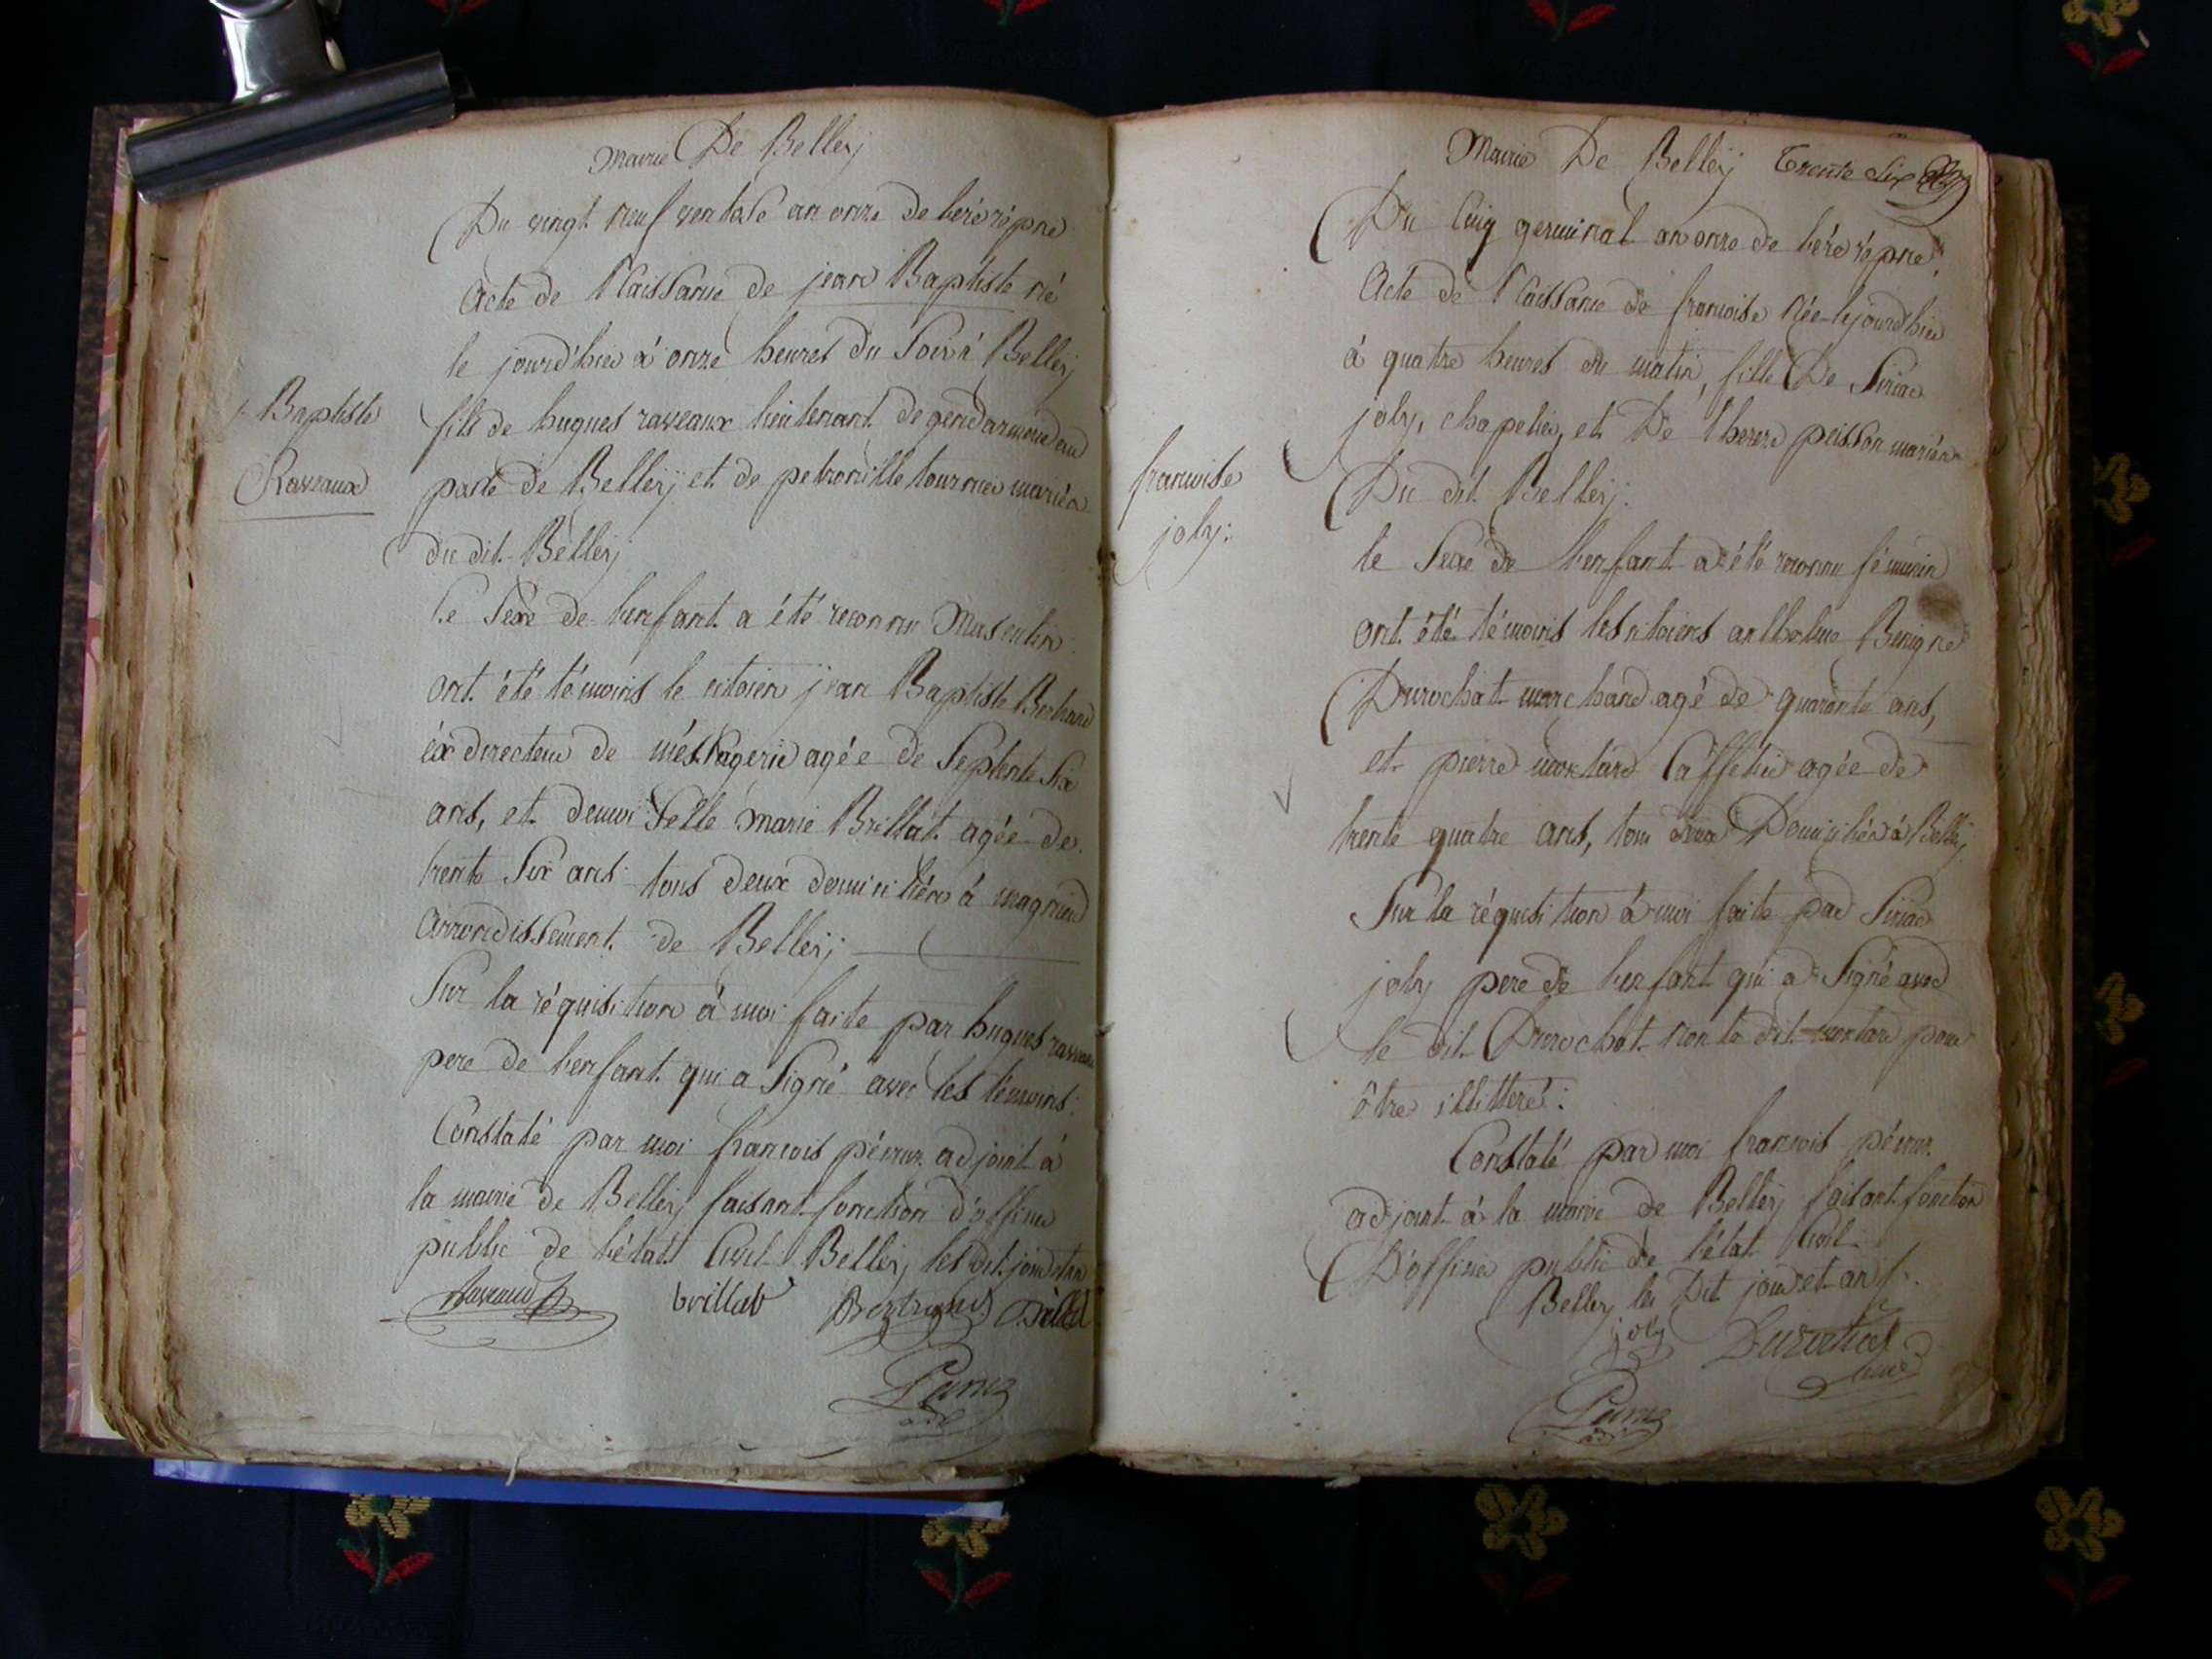 Mairie De Belleÿ
Du vingt neuf ventose an onze de l'ere répne
Acte de Naissance de jean Baptiste né
le jourd'hier à onze heures du Soir à Belleÿ
Baptiste
Raveaux
fils de hugues raveaux lieutenant de gendarmerie au
poste de Belleÿ et de petronille tournier mariés
du dit Belleÿ
le Sexe de l'enfant a été reconnu Masculin
ont été témoins le citoien jean Baptiste Bertrand
éx directeur de méssagerie agée de Septente Six
ans, et demoiselle Marie Brillat agée de
trente Six ans tous deux domiciliés à magnieu
arrondissement de Belleÿ
Sur la réquisition à moi faite par hugues raveaux
pere de l'enfant qui a Signé avec les témoins
Constaté par moi francois adjoint à
la mairie de Belleÿ faisant fonction d'officier
public de l'état Civil Belleÿ les dit jour et an
Raveaux brillat Bertrand
Mairie De Belleÿ Trente Six
Du Cinq germinal an onze de l'ére répne
Acte de Naissance de francoise Née lejourdhier
à quatre heures du matin, fille De Siriac
joly, chapelier, et De peisson mariés
francoise
joly
Du dit Belleÿ
le Sexe de l'enfant a été reconnu féminin
ont été témoins les citoiens anthelme Benigne
Durochat marchand agé de quarante ans,
et pierre Caffetier agée de
trente quatre ans, tous deux Domiciliés à Belleÿ
Sur la réquisition à moi faite par Siriac
joly pere de l'enfant qui a Signé avec
le dit Durochat non le dit pour
être illitteré
Constaté par moi francois
adjoint à la mairie de Belleÿ faisant fonction
D'officier public de l'état Civil
Belleÿ les Dit jour et an
joly Durochat